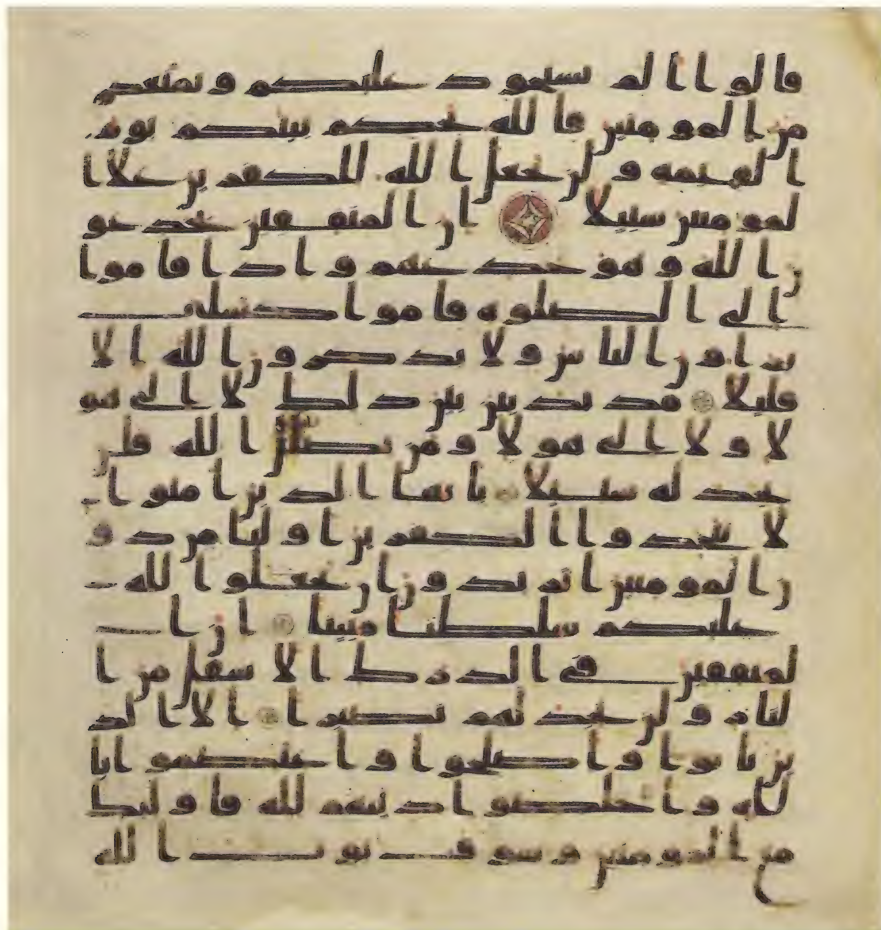 قالوا الم نستحوذ عليكم ونمنعكم
من المومنين فالله يحكم بينكم يوم
القيمه ولن يجعل الله للكفرين على ا
لمومنين سبيلا ان المنفقين يخدعو
ن الله وهو خدعهم واذا قاموا
الى الصلوه قاموا كسلى
يراون الناس ولا يذكرون الله الا
قليلا مذبذبين بين ذلك لا الى هو
لا ولا الى هولا ومن يضلل الله فلن
تجد له سبيلا يايها الذين امنوا
لا تتخذوا الكفرين اوليا من دو
ن المومنين اتريدون ان تجعلوا لله
عليكم سلطنا مبينا ان ا
لمنفقين في الدرك الاسفل من ا
لنار ولن تجد لهم نصيرا الا الذ
ين تابوا واصلحوا واعتصموا با
لله واخلصوا دينهم لله فاوليك
مع المومنين وسوف يوت الله